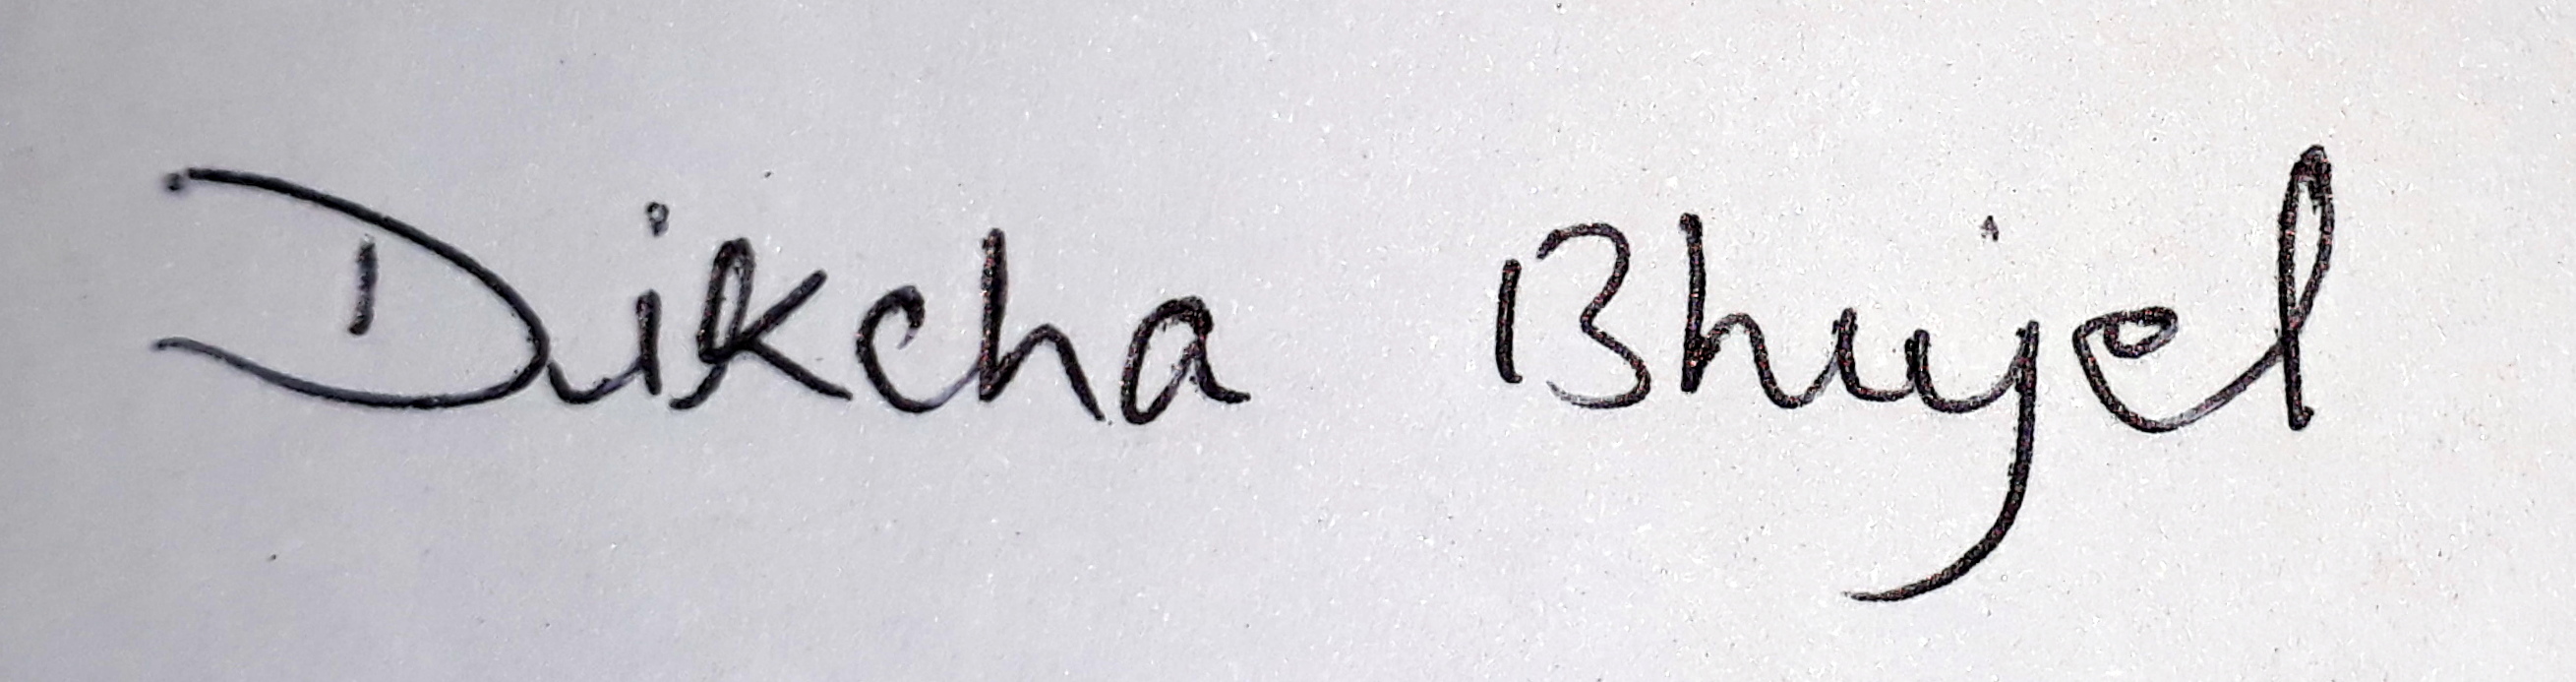 Dikcha Bhujel